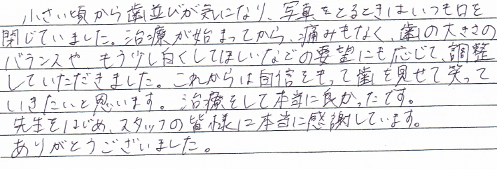 小さい頃から歯並びが気になり、写真をとるときはいつも口を
閉じていました。治療が始まってから、痛みもなく、歯の大きさの
バランスや もう少し白くしてほしいなどの要望にも応じて、調整
していただきました。これからは自信をもって歯を見せて笑って
いきたいと思います。治療をして本当に良かったです。
先生をはじめ、スタッフの皆様に本当に感謝しています。
ありがとうございました。